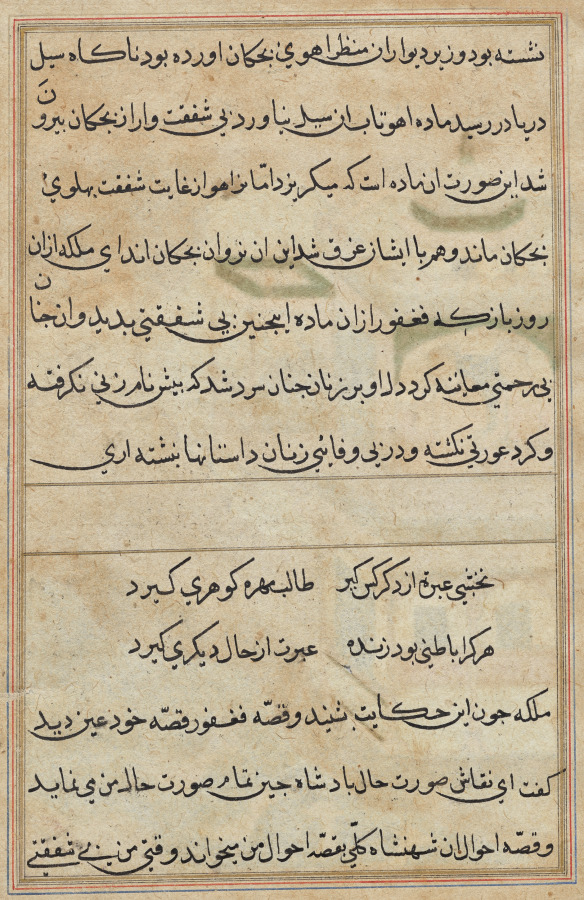 نشسته بود و زیر دیوار ان منظر اهوی بچکان اورده بود ناکاه سیل
دریا در رسید ماده اهو تاب ان سیل نیاورد بی شفقت وار از بچکان بیرون
شد این صورت ان ماده است که میکریزد اما نر اهو از غایت شفقت پهلوی
بچکان ماند و هم با ایشان غرق شد این ان نر و ان بچکان اند ای ملکه از ان
روز باز که فغفور از ان ماده اینچنین بی شفقتی بدید و ان چنان
بی رحمتی معاینه کرد دل او بر زنان چنان سرد شد که بیش نام زنی نکرفته
و کرد عورتی نکشته و در بی وفایئی زنان داستانها نبشته اری
نخشبی عبرة از دکر کس کیر طالب بهره کوهری کیرد
هر کرا باطنی بود زنده عبرت از حال دیکری کیرد
ملکه چون این حکایت بشنید و قصه فغفور قصه خود عین دید
کفت ای نقاش صورت حال بادشاه چین تمام صورت حال من می نماید
و قصه احوال ان شهنشاه کلی بقصه احوال من میخواند وقتی من نیز بی شفقتی